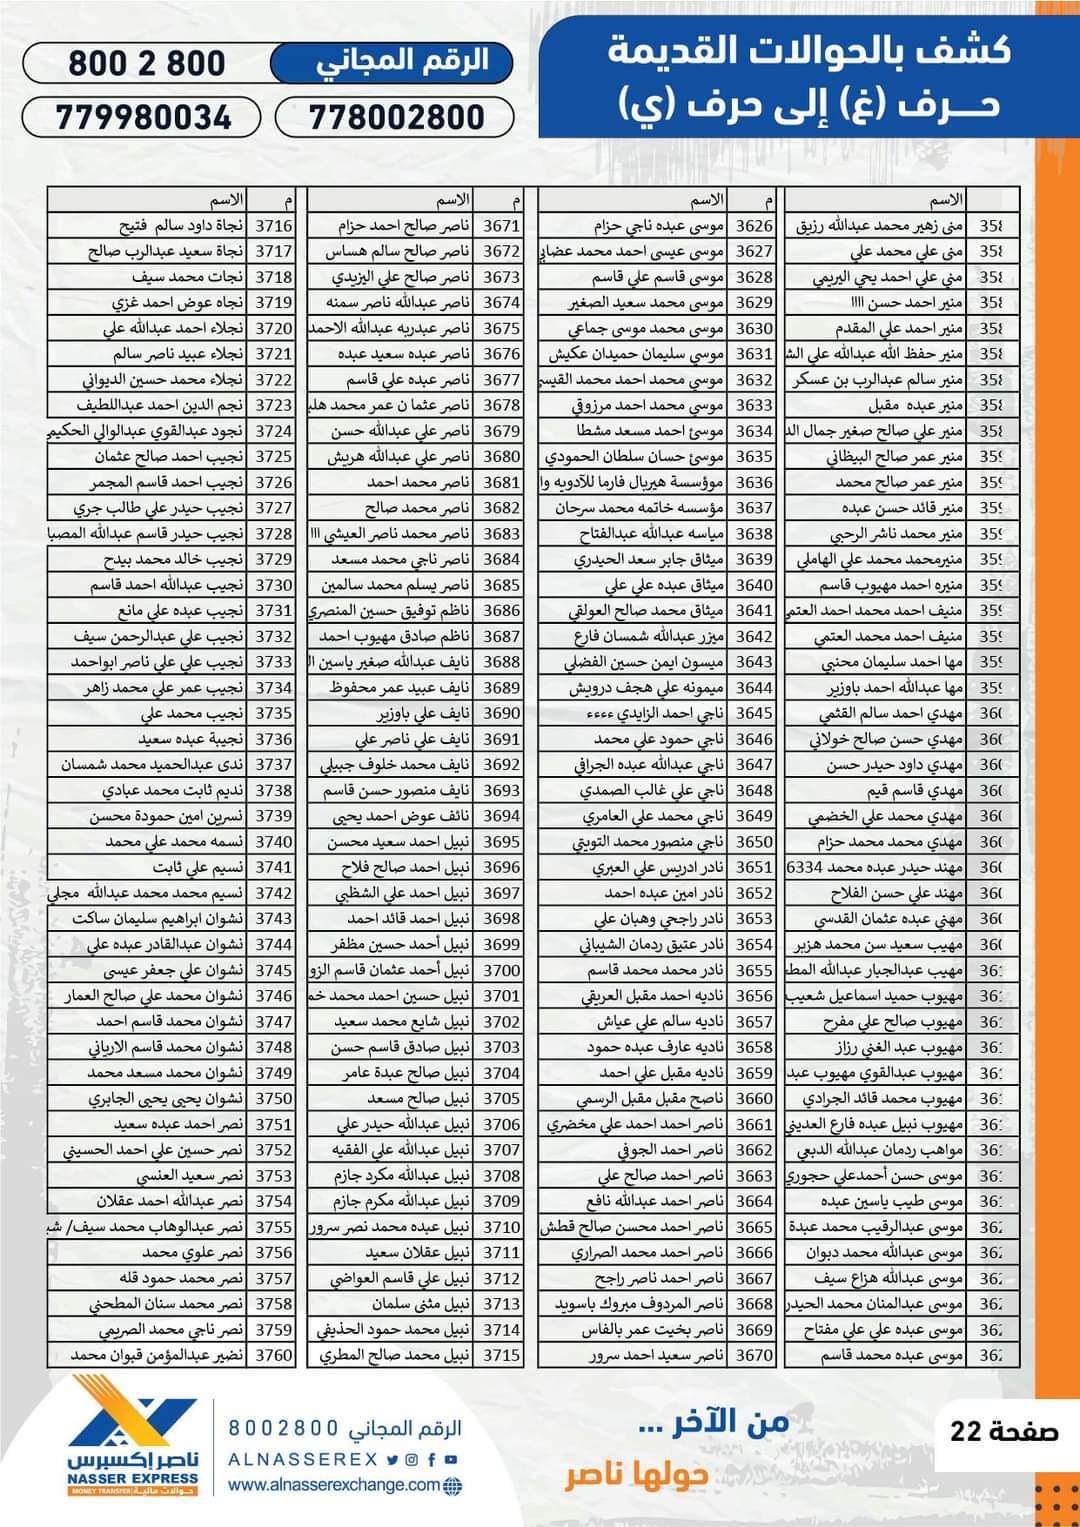 كشف بالحوالات القديمة
حـــرف (غ) إلى حرف (ي)
الرقم المجاني 800 2 800
778002800 779980034
الاسم
358 منى زهير محمد عبدالله رزيق
358 منى علي محمد علي
358 منى علي احمد يحي اليريمي
358 منير احمد حسن اااا
358 منير احمد علي المقدم
358 منير حفظ الله عبدالله علي الش
358 منير سالم عبدالرب بن عسكر
358 منير عبده مقبل
358 منير علي صالح صغير جمال الد
359 منير عمر صالح البيطاني
359 منير عمر صالح محمد
359 منير قائد حسن عبده
359 منير محمد ناشر الرحبي
359 منيرمحمد محمد علي الهاملي
359 منيره احمد مهيوب قاسم
359 منيف احمد محمد احمد العتمي
359 منيف احمد محمد العتمي
359 مها احمد سليمان محنبي
359 مها عبدالله احمد باوزير
360 مهدي احمد سالم القثمي
360 مهدي حسن صالح خولاني
360 مهدي داود حيدر حسن
360 مهدي قاسم قيم
360 مهدي محمد علي الخضمي
360 مهدي محمد محمد حزام
360 مهند حيدر عبده محمد 6334
360 مهند علي حسن الفلاح
360 مهني عبده عثمان القدسي
360 مهيب سعيد سن محمد هزبر
361 مهيب عبدالجبار عبدالله المط
361 مهيوب حميد اسماعيل شعيب
361 مهيوب صالح علي مفرح
361 مهيوب عبد الغني رزاز
361 مهيوب عبدالقوي مهيوب عبد
361 مهيوب محمد قائد الجرادي
361 مهيوب نبيل عبده فارع العديني
361 مواهب ردمان عبدالله الدبعي
361 موسى حسن أحمدعلي حجوري
361 موسى طيب ياسين عبده
362 موسى عبدالرقيب محمد عبدة
362 موسى عبدالله محمد دبوان
362 موسى عبدالله هزاع سيف
362 موسى عبدالمنان محمد الحيدر
362 موسى عبده علي علي مفتاح
362 موسى عبده محمد قاسم
م الاسم
3626 موسى عبده ناجي حزام
3627 موسى عيسى احمد محمد عضابي
3628 موسى قاسم علي قاسم
3629 موسى محمد سعيد الصغير
3630 موسى محمد موسى جماعي
3631 موسي سليمان حميدان عكيش
3632 موسي محمد احمد محمد القيسي
3633 موسي محمد احمد مرزوقي
3634 موسئ احمد مسعد مشطا
3635 موسئ حسان سلطان الحمودي
3636 موؤسسة هيربال فارما للآدويه وا
3637 مؤسسه خاتمه محمد سرحان
3638 مياسه عبدالله عبدالفتاح
3639 ميثاق جابر سعد الحيدري
3640 ميثاق عبده علي علي
3641 ميثاق محمد صالح العولقي
3642 ميزر عبدالله شمسان فارع
3643 ميسون ايمن حسين الفضلي
3644 ميمونه علي هجف درويش
3645 ناجي احمد الزايدي ءءءء
3646 ناجي حمود علي محمد
3647 ناجي عبدالله عبده الجرافي
3648 ناجي علي غالب الصمدي
3649 ناجي محمد علي العامري
3650 ناجي منصور محمد التويتي
3651 نادر ادريس علي العبري
3652 نادر امين عبده احمد
3653 نادر راجحي وهبان علي
3654 نادر عتيق ردمان الشيباني
3655 نادر محمد محمد قاسم
3656 ناديه احمد مقبل العريقي
3657 ناديه سالم علي عياش
3658 ناديه عارف عبده حمود
3659 ناديه مقبل علي احمد
3660 ناصح مقبل مقبل الرسمي
3661 ناصر احمد احمد علي مخضري
3662 ناصر احمد الجوفي
3663 ناصر احمد صالح علي
3664 ناصر احمد عبدالله نافع
3665 ناصر احمد محسن صالح قطش
3666 ناصر احمد محمد الصراري
3667 ناصر احمد ناصر راجح
3668 ناصر المردوف مبروك باسويد
3669 ناصر بخيت عمر بالفاس
3670 ناصر سعيد احمد سرور
م الاسم
3671 ناصر صالح احمد حزام
3672 ناصر صالح سالم هساس
3673 ناصر صالح علي اليزيدي
3674 ناصر عبدالله ناصر سمنه
3675 ناصر عبدربه عبدالله الاحمد
3676 ناصر عبده سعيد عبده
3677 ناصر عبده علي قاسم
3678 ناصر عثما ن عمر محمد هلب
3679 ناصر علي عبدالله حسن
3680 ناصر علي عبدالله هريش
3681 ناصر محمد احمد
3682 ناصر محمد صالح
3683 ناصر محمد ناصر العيشي ااا
3684 ناصر ناجي محمد مسعد
3685 ناصر يسلم محمد سالمين
3686 ناظم توفيق حسين المنصري
3687 ناظم صادق مهيوب احمد
3688 نايف عبدالله صغير ياسين ال
3689 نايف عبيد عمر محفوظ
3690 نايف علي باوزير
3691 نايف علي ناصر علي
3692 نايف محمد خلوف جبيلي
3693 نايف منصور حسن قاسم
3694 نائف عوض احمد يحيى
3695 نبيل احمد سعيد محسن
3696 نبيل احمد صالح فلاح
3697 نبيل احمد علي الشظبي
3698 نبيل احمد قائد احمد
3699 نبيل أحمد حسين مظفر
3700 نبيل أحمد عثمان قاسم الزو
3701 نبيل حسين احمد محمد خم
3702 نبيل شايع محمد سعيد
3703 نبيل صادق قاسم حسن
3704 نبيل صالح عبدة عامر
3705 نبيل صالح مسعد
3706 نبيل عبدالله حيدر علي
3707 نبيل عبدالله علي الفقيه
3708 نبيل عبدالله مكرد جازم
3709 نبيل عبدالله مكرم جازم
3710 نبيل عبده محمد نصر سرور
3711 نبيل عقلان سعيد
3712 نبيل علي قاسم العواضي
3713 نبيل مثنى سلمان
3714 نبيل محمد حمود الحذيفي
3715 نبيل محمد صالح المطري
م الاسم
3716 نجاة داود سالم فتيح
3717 نجاة سعيد عبدالرب صالح
3718 نجات محمد سيف
3719 نجاه عوض احمد غزي
3720 نجلاء احمد عبدالله علي
3721 نجلاء عبيد ناصر سالم
3722 نجلاء محمد حسين الديواني
3723 نجم الدين احمد عبداللطيف
3724 نجود عبدالقوي عبدالوالي الحكيمي
3725 نجيب احمد صالح عثمان
3726 نجيب احمد قاسم المجمر
3727 نجيب حيدر علي طالب جري
3728 نجيب حيدر قاسم عبدالله المصبا
3729 نجيب خالد محمد بيدح
3730 نجيب عبدالله احمد قاسم
3731 نجيب عبده علي مانع
3732 نجيب علي عبدالرحمن سيف
3733 نجيب علي علي ناصر ابواحمد
3734 نجيب عمر علي محمد زاهر
3735 نجيب محمد علي
3736 نجيبة عبده سعيد
3737 ندى عبدالحميد محمد شمسان
3738 نديم ثابت محمد عبادي
3739 نسرين امين حمودة محسن
3740 نسمه محمد علي محمد
3741 نسيم علي ثابت
3742 نسيم محمد محمد عبدالله مجلي
3743 نشوان ابراهيم سليمان ساكت
3744 نشوان عبدالقادر عبده علي
3745 نشوان علي جعفر عيسى
3746 نشوان محمد علي صالح العمار
3747 نشوان محمد قاسم احمد
3748 نشوان محمد قاسم الارياني
3749 نشوان محمد مسعد محمد
3750 نشوان يحيى يحيى الجابري
3751 نصر احمد عبده سعيد
3752 نصر حسين علي احمد الحسيني
3753 نصر سعيد العنسي
3754 نصر عبدالله احمد عقلان
3755 نصر عبدالوهاب محمد سيف/ شب
3756 نصر علوي محمد
3757 نصر محمد حمود قله
3758 نصر محمد سنان المطحني
3759 نصر ناجي محمد الصريمي
3760 نضير عبدالمؤمن قبوان محمد
صفحة 22
من الآخر ...
حولها ناصر
الرقم المجاني 8002800
ALNASSEREX
www.alnasserexchange.com
ناصر إكسبرس
NASSER EXPRESS
MONEY TRANSFER حـوالات مـالـيـة